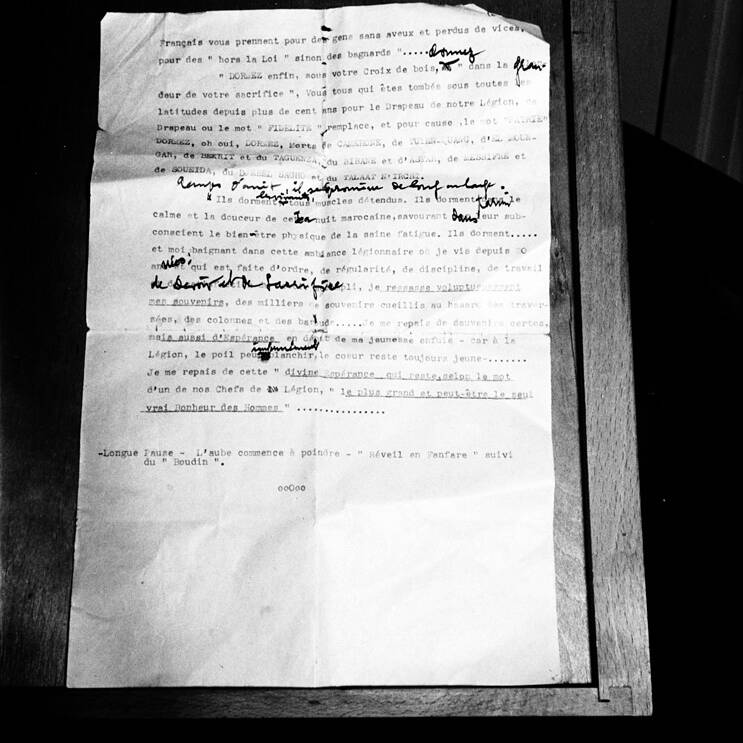 Français vous prennent pour des gens sans aveux et perdus de vices,
pour des " hors la Loi " sinon des bagnards ".....
Dormez
" DORMEZ enfin, sous votre Croix de bois, " dans la gran-
deur de votre sacrifice ", Vous tous qui êtes tombés sous toutes les
latitudes depuis plus de cent ans pour le Drapeau de notre Légion, ce
Drapeau ou le mot " FIDELITE " remplace, et pour cause, le mot "PATRIE"
DORMEZ, oh oui, DORMEZ, Morts de CAMERONE, de TUYEN-QUANG, d'EL MOUN-
GAR, de BEKRIT et du TAGUENZA, du BIBANE et d'ASTAR, de MESSIFRE et
de SOUEIDA, du DJEBEL SAGHO et du TALAAT N'IRCHT.
Temps d'arrêt, il se promène de long en large.
" Ils dorment, tous muscles détendus. Ils dorment le
calme et la douceur de cette nuit marocaine, savourant dans leur sub-
conscient le bien-être physique de la saine fatigue. Ils dorment.....
et moi, baignant dans cette ambiance légionnaire où je vis depuis 20
ans et qui est faite d'ordre, de régularité, de discipline, de travail
de Devoir et de Sacrifice
je ressasse voluptueusement
mes souvenirs, des milliers de souvenirs cueillis au hasard des traver-
sées, des colonnes et des barouds.....Je me repais de souvenirs certes,
mais aussi d'Espérance en dépit de ma jeunesse enfuie - car à la
Légion, le poil peut blanchir, le coeur reste toujours jeune-.......
Je me repais de cette " divine Espérance qui reste, selon le mot
d'un de nos Chefs de Légion, " le plus grand et peut-être le seul
vrai Bonheur des Hommes " ................
-Longue Pause - L'aube commence à poindre - " Réveil en Fanfare " suivi
du " Boudin ".
ooOoo